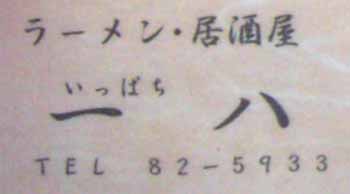 ラーメン・居酒屋
いっぱち
一八
TEL 82-5933